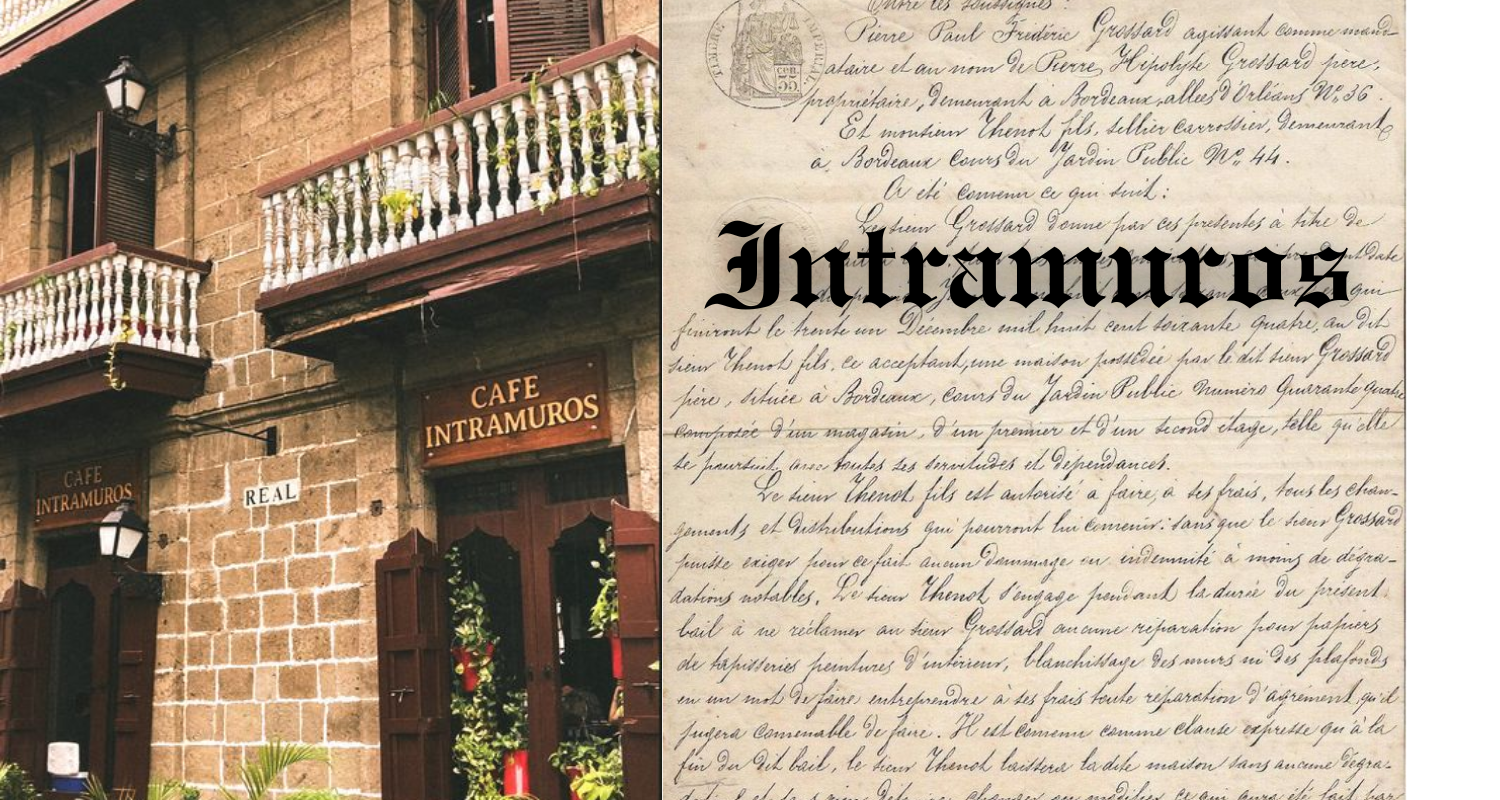 CAFE
INTRAMUROS
REAL
CAFE
INTRAMUROS
Intramuros
Entre les soussignés :
TIMBRE IMPERIAL
35 cen.
Pierre Paul Frédéric Grossard agissant comme mand-
ataire et au nom de Pierre Hipolyte Grossard père,
propriétaire, demeurant à Bordeaux, allées d'Orléans No. 36.
Et monsieur Thenot fils, sellier carrossier, demeurant
à Bordeaux cours du Jardin Public No. 44.
A été convenu ce qui suit :
Le sieur Grossard donne par ces présentes à titre de
qui
finiront le trente un Décembre mil huit cent soixante quatre, au dit
sieur Thenot fils, ce acceptant, une maison possédée par le dit sieur Grossard
père, située à Bordeaux, cours du Jardin Public Numéro Quarante quatre
composée d'un magasin, d'un premier et d'un second étage, telle qu'elle
se poursuit, avec toutes ses servitudes et dépendances.
Le sieur Thenot fils est autorisé a faire, à ses frais, tous les chan-
gements et distributions qui pourront lui convenir : sans que le sieur Grossard
puisse exiger pour ce fait aucun dommage ou indemnité à moins de dégra-
dations notables. Le sieur Thenot s'engage pendant la durée du présent
bail à ne réclamer au sieur Grossard aucune réparation pour papiers
de tapisseries peintures d'intérieur, blanchissage des murs ni des plafonds
en un mot de faire entreprendre à ses frais toute réparation d'agrément, qu'il
jugera convenable de faire. Il est convenu comme clause expresse qu'à la
fin du dit bail, le sieur Thenot laissera la dite maison sans aucune dégra-
changer ou modifier ce qui aura été fait par